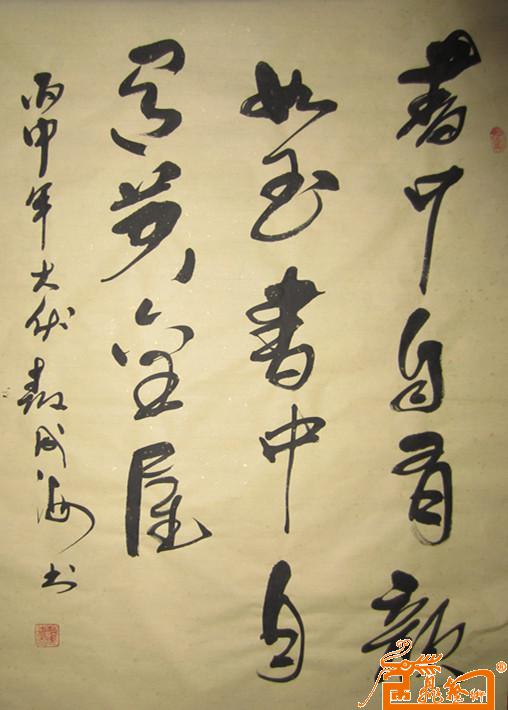 書中自有颜
如玉書中自
有黄金屋
丙申年大伏敖成海书